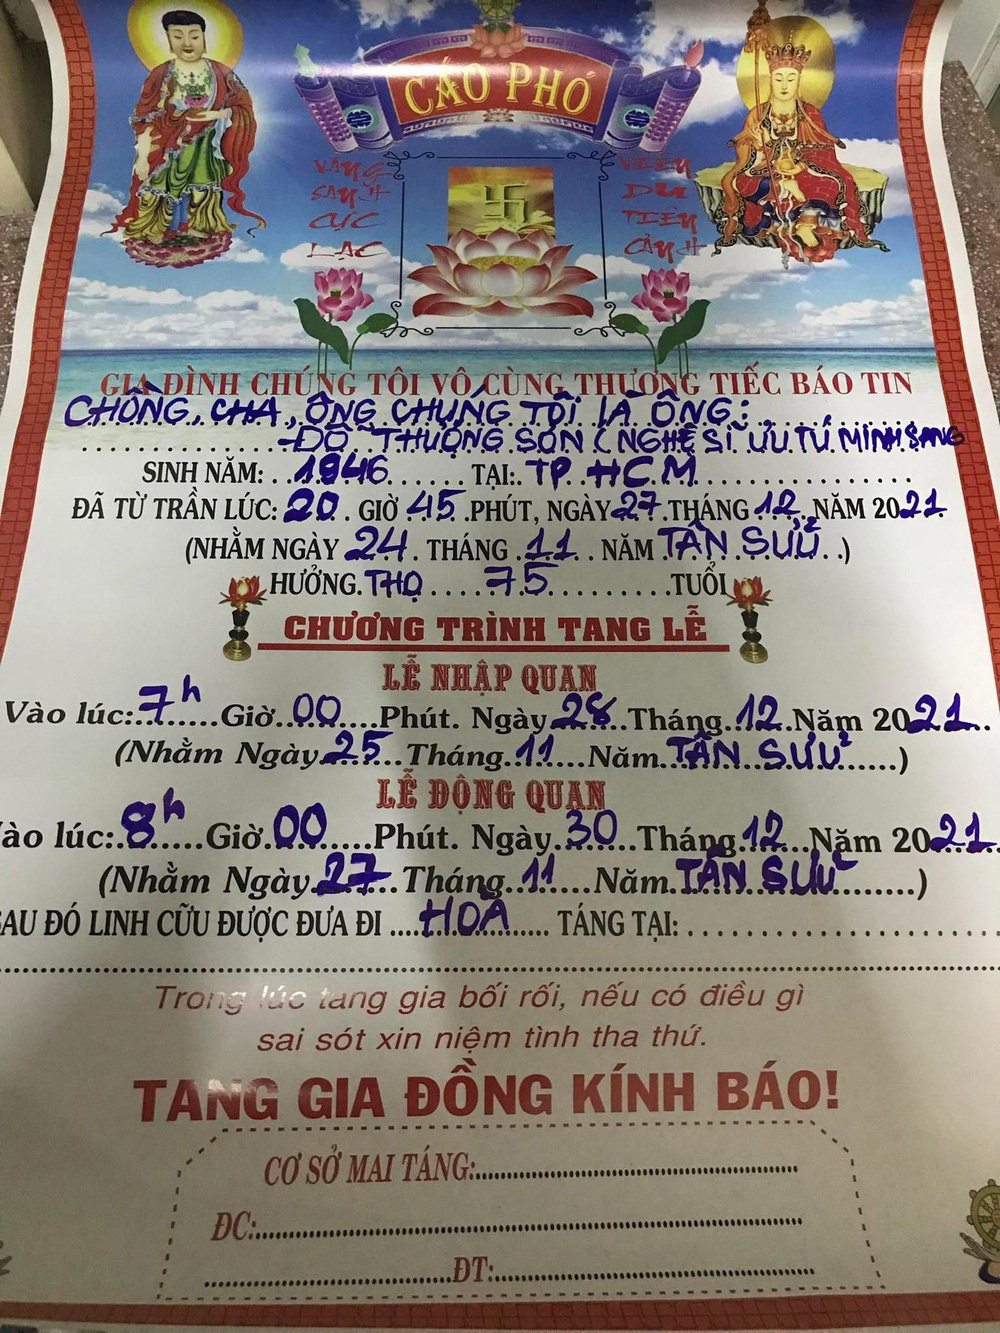 CÁO PHÓ
VÃNG
SANH
CỰC
LẠC
DU
TIÊN
CẢNH
GIA ĐÌNH CHÚNG TÔI VÔ CÙNG THƯƠNG TIẾC BÁO TIN
CHỒNG, CHA, ÔNG CHÚNG TÔI LÀ ÔNG:
-ĐỖ THUỘNG SƠN (NGHỆ SĨ ƯU TÚ MINH SANG
SINH NĂM: 1946 TẠI: TP HCM
ĐÃ TỪ TRẦN LÚC: 20 GIỜ 45 PHÚT, NGÀY 27 THÁNG 12, NĂM 2021
(NHẰM NGÀY 24 THÁNG 11 NĂM TÂN SỬU)
HƯỞNG THỌ 75 TUỔI
CHƯƠNG TRÌNH TANG LỄ
LỄ NHẬP QUAN
Vào lúc: 7h Giờ 00 Phút. Ngày 28 Tháng 12 Năm 2021
(Nhằm Ngày 25 Tháng 11 Năm TÂN SỬU)
LỄ ĐỘNG QUAN
Vào lúc: 8h Giờ 00 Phút. Ngày 30 Tháng 12 Năm 2021
(Nhằm Ngày 27 Tháng 11 Năm TÂN SỬU)
SAU ĐÓ LINH CỮU ĐƯỢC ĐƯA ĐI HOẢ TÁNG TẠI:
Trong lúc tang gia bối rối, nếu có điều gì
sai sót xin niệm tình tha thứ.
TANG GIA ĐỒNG KÍNH BÁO!
CƠ SỞ MAI TÁNG:
ĐC:
ĐT: